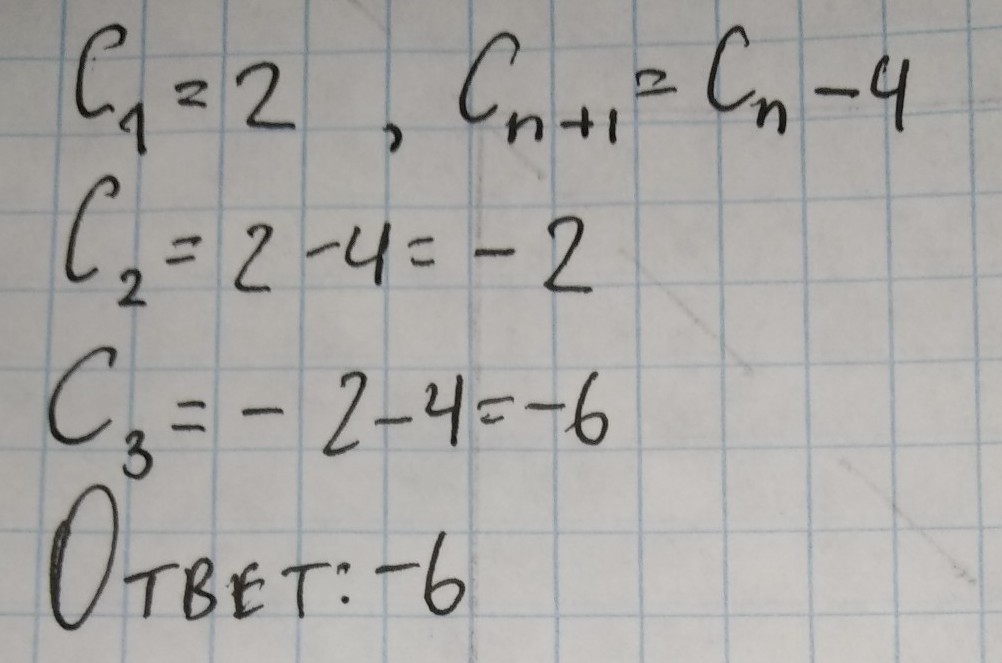 C₁ = 2 , Cₙ₊₁ = Cₙ − 4
C₂ = 2 − 4 = − 2
C₃ = − 2 − 4 = −6
Ответ: −6